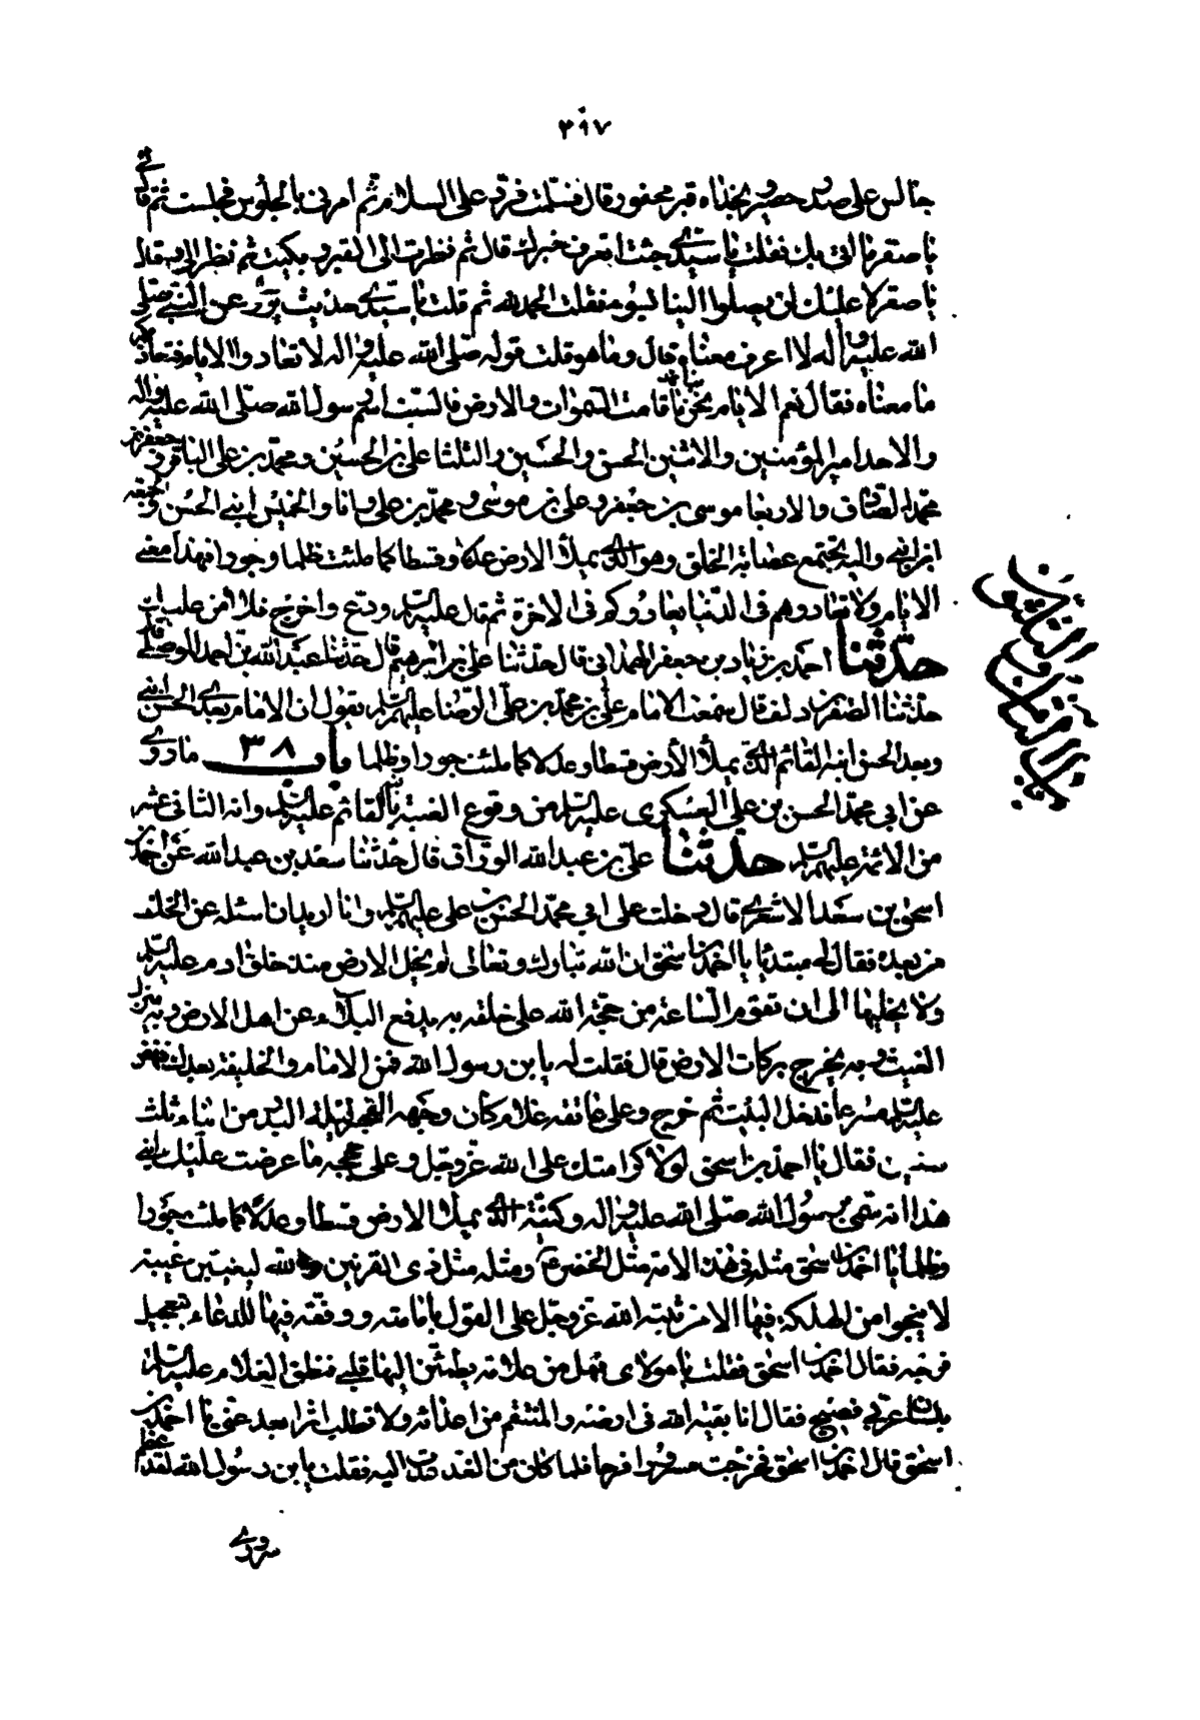 ٢٩٧
جالس على صدر حصير وبحذاه قبر محفور قال فسلمت فرد على السلام ثم امرنى بالجلوس فجلست ثم قال لى
يا صقر ما اتى بك فقلت يا سيدى جئت اتعرف خبرك قال ثم نظرت الى القبر وبكيت ثم نظر الى وقال
يا صقر لا عليك لن يصلوا الينا بسوء فقلت الحمد لله ثم قلت يا سيدى حديث يروى عن النبى صلى
الله عليه واله لا اعرف معناه قال وما هو قلت قوله صلى الله عليه واله لا تعادوا الايام فتعاديكم
ما معناه فقال نعم الايام نحن بنا قامت السموات والارض فالسبت اسم رسول الله صلى الله عليه واله
والاحد امير المؤمنين والاثنين الحسن والحسين والثلثا على بن الحسين ومحمد بن على الباقر وجعفر بن
محمد الصادق والاربعا موسى بن جعفر وعلى بن موسى ومحمد بن على وانا والخميس ابنى الحسن والجمعة
ابن ابنى واليه تجتمع عصابة الخلق وهو الذى يملأ الارض عدلا وقسطا كما ملئت ظلما وجورا فهذا معنى
الايام ولا تعادوهم فى الدنيا يعادوكم فى الاخرة ثم قال عليه السلم ودع واخرج فلا امن عليك
حدثنا احمد بن زياد بن جعفر الهمدانى قال حدثنا على بن ابرهيم قال حدثنا عبد الله بن احمد الموصلى قال
حدثنا الصقر بن ابى دلف قال سمعت الامام على بن محمد بن على الرضا عليهم السلم يقول ان الامام بعدى الحسن ابنى
وبعد الحسن ابنه القائم الذى يملأ الأرض قسطا وعدلا كما ملئت جورا وظلما باب ٣٨ ما روى
عن ابى محمد الحسن بن على العسكرى عليه السلم من وقوع الغيبة بابنه القائم عليه السلم وانه الثانى عشر
من الائمة عليهم السلم حدثنا على بن عبد الله الوراق قال حدثنا سعد بن عبد الله عن احمد بن
اسحق بن سعد الاشعرى قال دخلت على ابى محمد الحسن بن على عليهما السلم وانا اريد ان اسئله عن الخلف
من بعده فقال لى مبتدئا يا احمد بن اسحق ان الله تبارك وتعالى لم يخل الارض منذ خلق ادم عليه السلم
ولا يخليها الى ان تقوم الساعة من حجة الله على خلقه به يدفع البلاء عن اهل الارض وبه ينزل
الغيث وبه يخرج بركات الارض قال فقلت له يا بن رسول الله فمن الامام والخليفة بعدك فنهض
عليه السلم مسرعا فدخل البيت ثم خرج وعلى عاتقه غلام كان وجهه القمر ليلة البدر من ابناء ثلث
سنين فقال يا احمد بن اسحق لولا كرامتك على الله عز وجل وعلى حججه ما عرضت عليك ابنى
هذا انه سمى رسول الله صلى الله عليه واله وكنيه الذى يملأ الارض قسطا وعدلا كما ملئت جورا
وظلما يا احمد بن اسحق مثله فى هذه الامة مثل الخضر ع ومثله مثل ذى القرنين والله ليغيبن غيبة
لا ينجوا من الهلكة فيها الا من ثبته الله عز وجل على القول بامامته ووفقه فيها للدعاء بتعجيل
فرجه فقال احمد بن اسحق فقلت يا مولاى فهل من علامة يطمئن اليها قلبى فنطق الغلام عليه السلم
بلسان عربى فصيح فقال انا بقية الله فى ارضه والمنتقم من اعدائه ولا تطلب اثرا بعد عين يا احمد بن
اسحق قال احمد بن اسحق فخرجت مسرورا فرحا فلما كان من الغد عدت اليه فقلت يا بن رسول الله لقد عظم
سرورى
الباب الثامن والثلثون